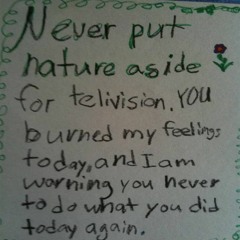 Never purt
nature aside
for telivision. YOU
burned my feelings
today, and I am
worning you never
to do what you did
today again.